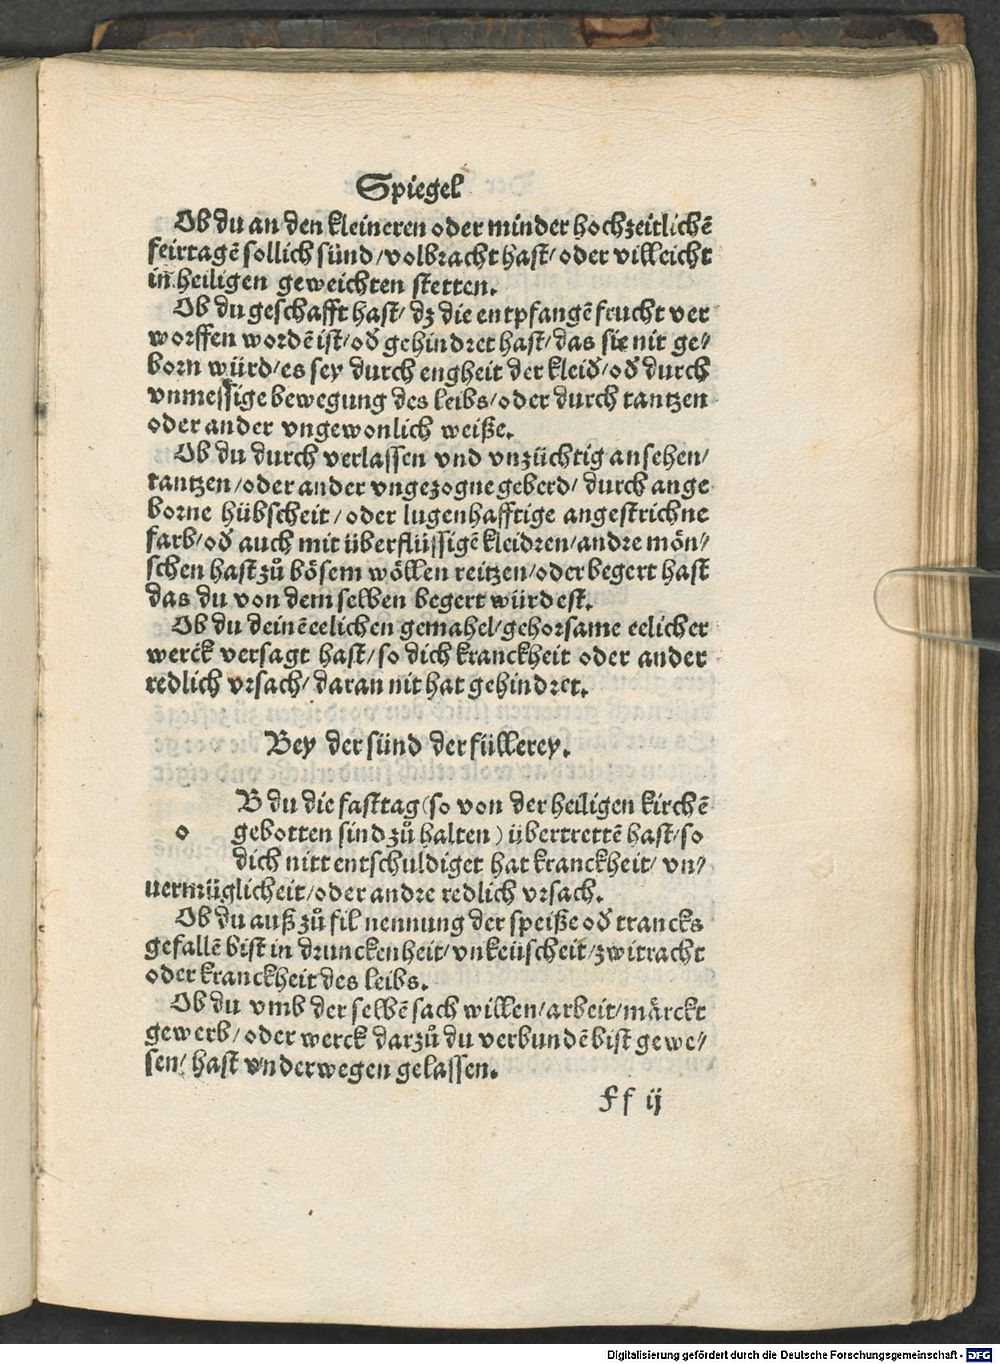 Spiegel
Ob du an den kleineren oder minder hochzeitlichē
feirtagē sollich sünd/volbracht hast/oder villeicht
in heiligen geweichten stetten.
Ob du geschafft hast/ dz die entpfangē frucht ver
worffen wordē ist/od̄ gehindret hast/das sie nit ge/
born würd/es sey durch engheit der kleid̄/od̄ durch
vnmessige bewegung des leibs/oder durch tantzen
oder ander vngewonlich weiße.
Ob du durch verlassen vnd vnzüchtig ansehen/
tantzen/oder ander vngezogne geberd/ durch ange
borne hübscheit/oder lugenhafftige angestrichne
farb/od̄ auch mit überflüssigē kleidren/andre mön/
schen hast zů bösem wöllen reitzen/oder begert hast
das du von dem selben begert würdest.
Ob du deinē eelichen gemahel/gehorsame eelicher
werck versagt hast/so dich kranckheit oder ander
redlich vrsach/daran nit hat gehindret.
Bey der sünd der füllerey.
o B du die fasttag (so von der heiligen kirchē
gebotten sind zů halten) übertrettē hast/so
dich nitt entschuldiget hat kranckheit/ vn/
uermüglicheit/oder andre redlich vrsach.
Ob du auß zů fil nennung der speiße od̄ trancks
gefallē bist in drunckenheit/vnkeüscheit/zwitracht
oder kranckheit des leibs.
Ob du vmb der selbē sach willen/arbeit/märckt
gewerb/oder werck darzů du verbundē bist gewe/
sen/ hast vnderwegen gelassen.
Ff ij
Digitalisierung gefördert durch die Deutsche Forschungsgemeinschaft - DFG